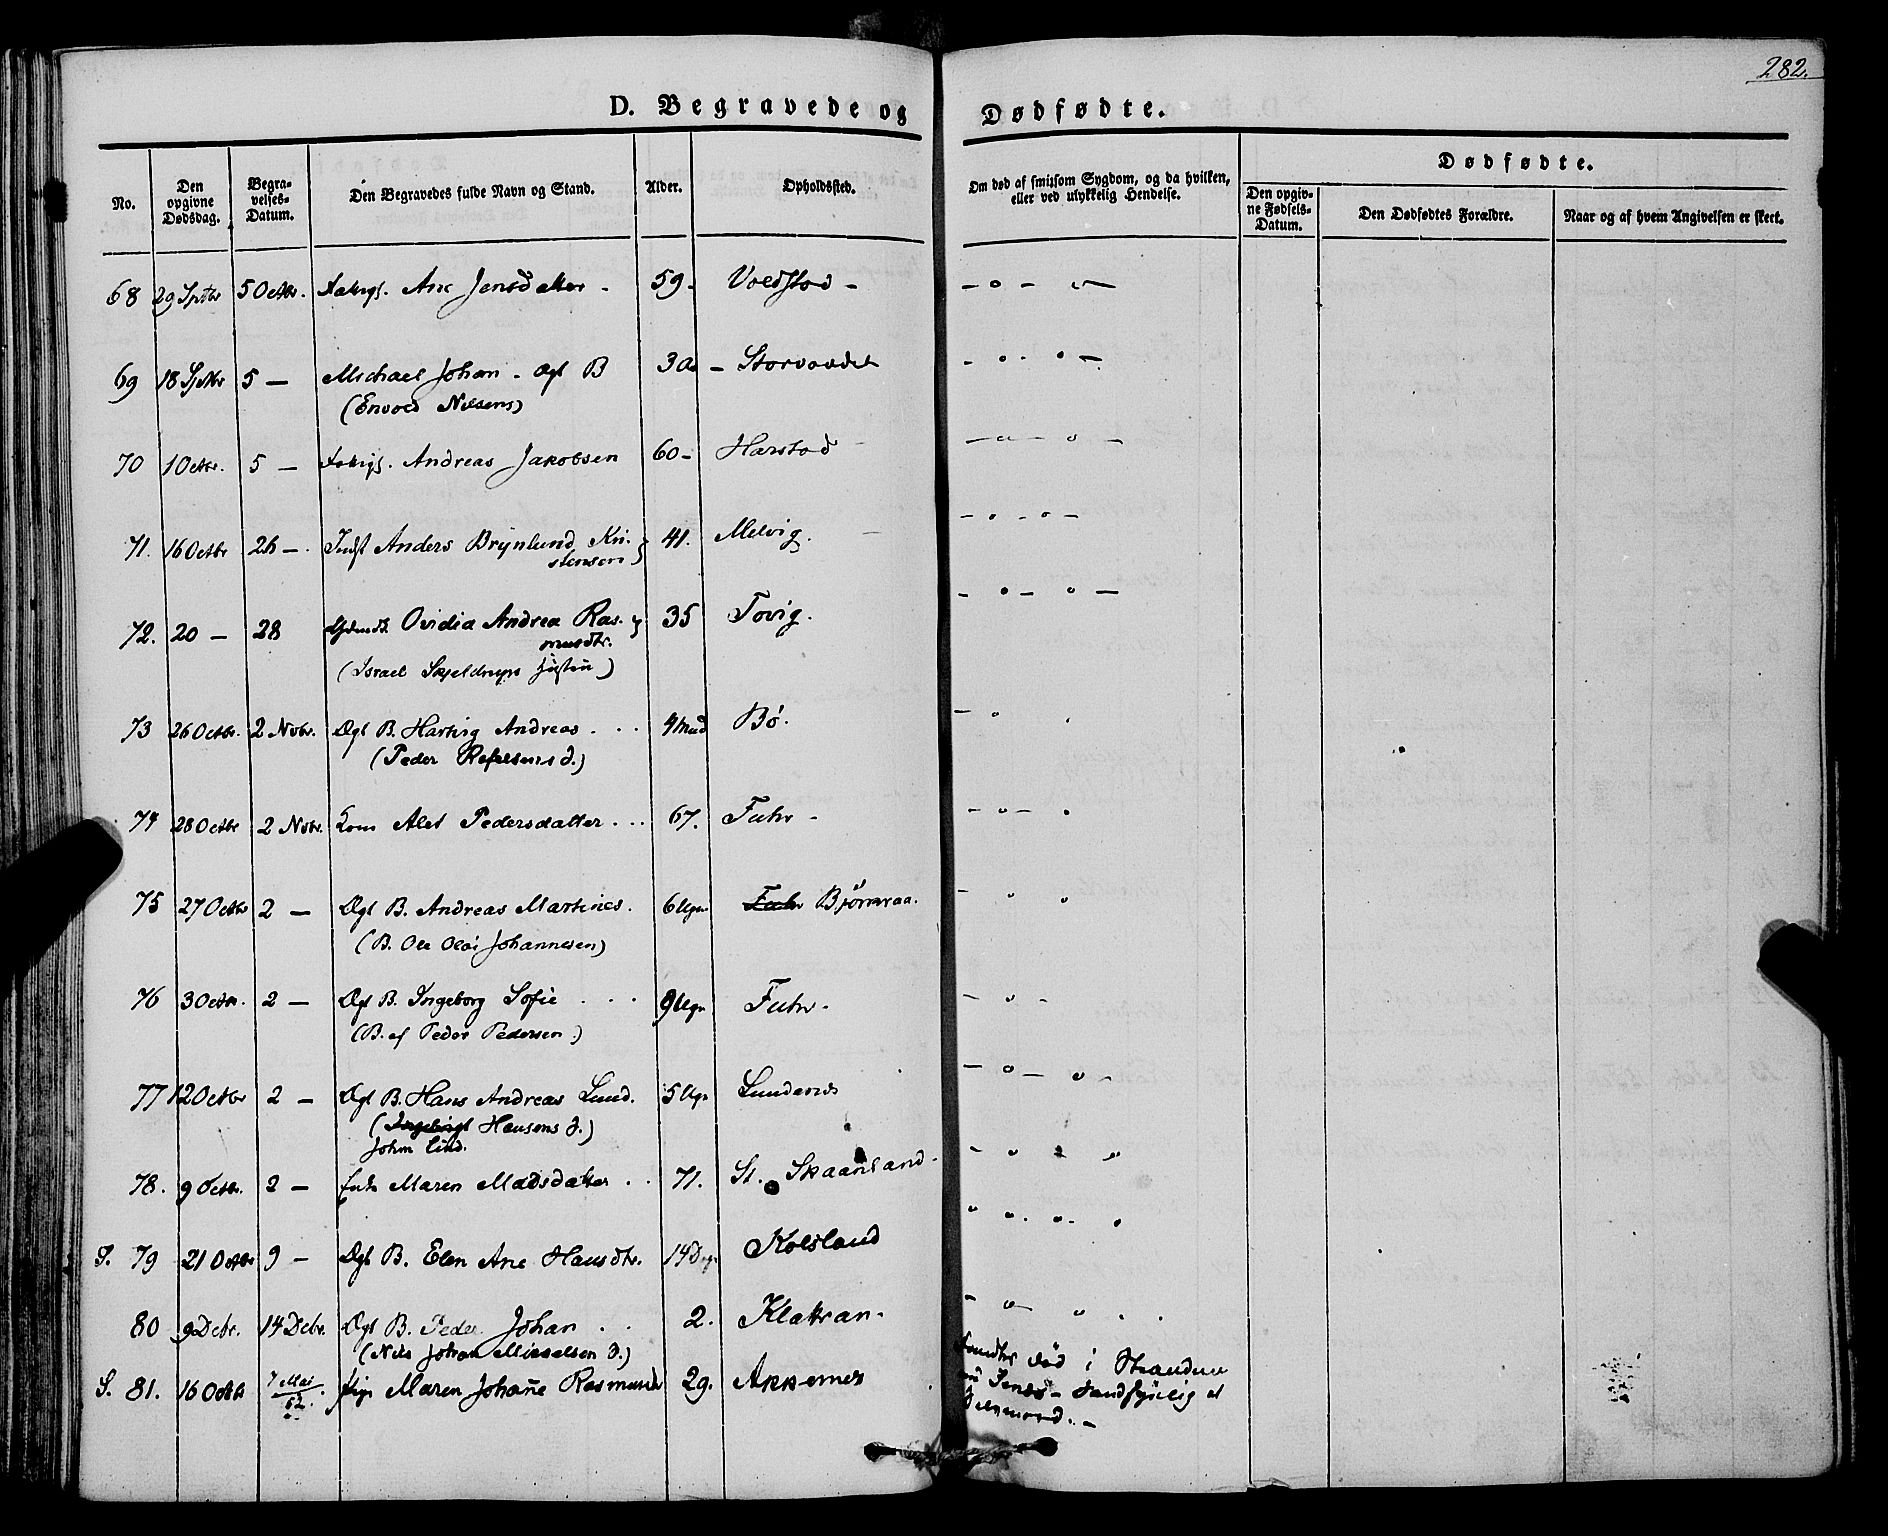 282.
D. Begravede og Dødfødte.
No. Den opgivne Dødsdag. Begravelses-Datum. Den Begravedes fulde Navn og Stand. Alder. Opholdssted. Om død af smitsom Sygdom, og da hvilken, eller ved ulykkelig Hendelse. Dødfødte.
Den opgivne Fødsels-Datum. Den Dødfødtes Forældre. Naar og af hvem Angivelsen er skeet.
68 29 Sptbr 5 Octbr. Fattigl. Ane Jensdatter - 59- Voldstad - - o -
69 18 Sptbr 5 — Michael Johan - Ægt B 30 - Storvandet - o - o -
(Envold Nilsens)
70 1 Octbr. 5 — Fattigl. Andreas Jakobsen 60- Harstad - o - o -
71. 16 Octbr 26 -. Indst Anders Brynlund Kri- 41. Melvig. - o - o -
stensen
72. 20 — 28 Ovidia Andrea Ras- 35 Tovig. - o - o -
musdtr.
(Israel Skjeldrups Hustru)
73 26 Octbr. 2 Novbr. Ægt B. Hartvig Andreas . . . 4 Mnd Bø. - o
(Peder Refelsens S.)
74 28 Octbr 2 Novbr. Kone Alet Pedersdatter . . . 67. Fuhr - - o - o
75 27 Octbr 2 — Ægt B. Andreas Martines. 6 Ugr Fuhr Bjørnraa. - o o
(B. Ole Olai Johannesen)
76 3 Octbr. 2 — Ægt B. Ingeborg Sofie . . . 9 Ugr Fuhr - - o -
(B. af Peder Pedersen.)
77 12 Octbr 2 — Ægt B. Hans Andreas Lund. 5 Ugr Lundenes - o - o -
(Hansens S.)
John Lind.
78. 9 Octbr. 2 — Enke Maren Madsdatter . . 71. St. Skaanland - - o
S. 79 21 Octbr 9 - Ægt B. Elen Ane Hansdtr. 14 Dg Kolsland
80 9 Debr. 14 Debr. Ægt B. Peder Johan . . 2. Klatran - - o - o
(Nils Johan Mikkelsen S.)
S. 81. 16 Octbr 7 Mai 62. Pige Maren Johañe Rasmusdr 29. Akkernes Fandtes død i Stranden